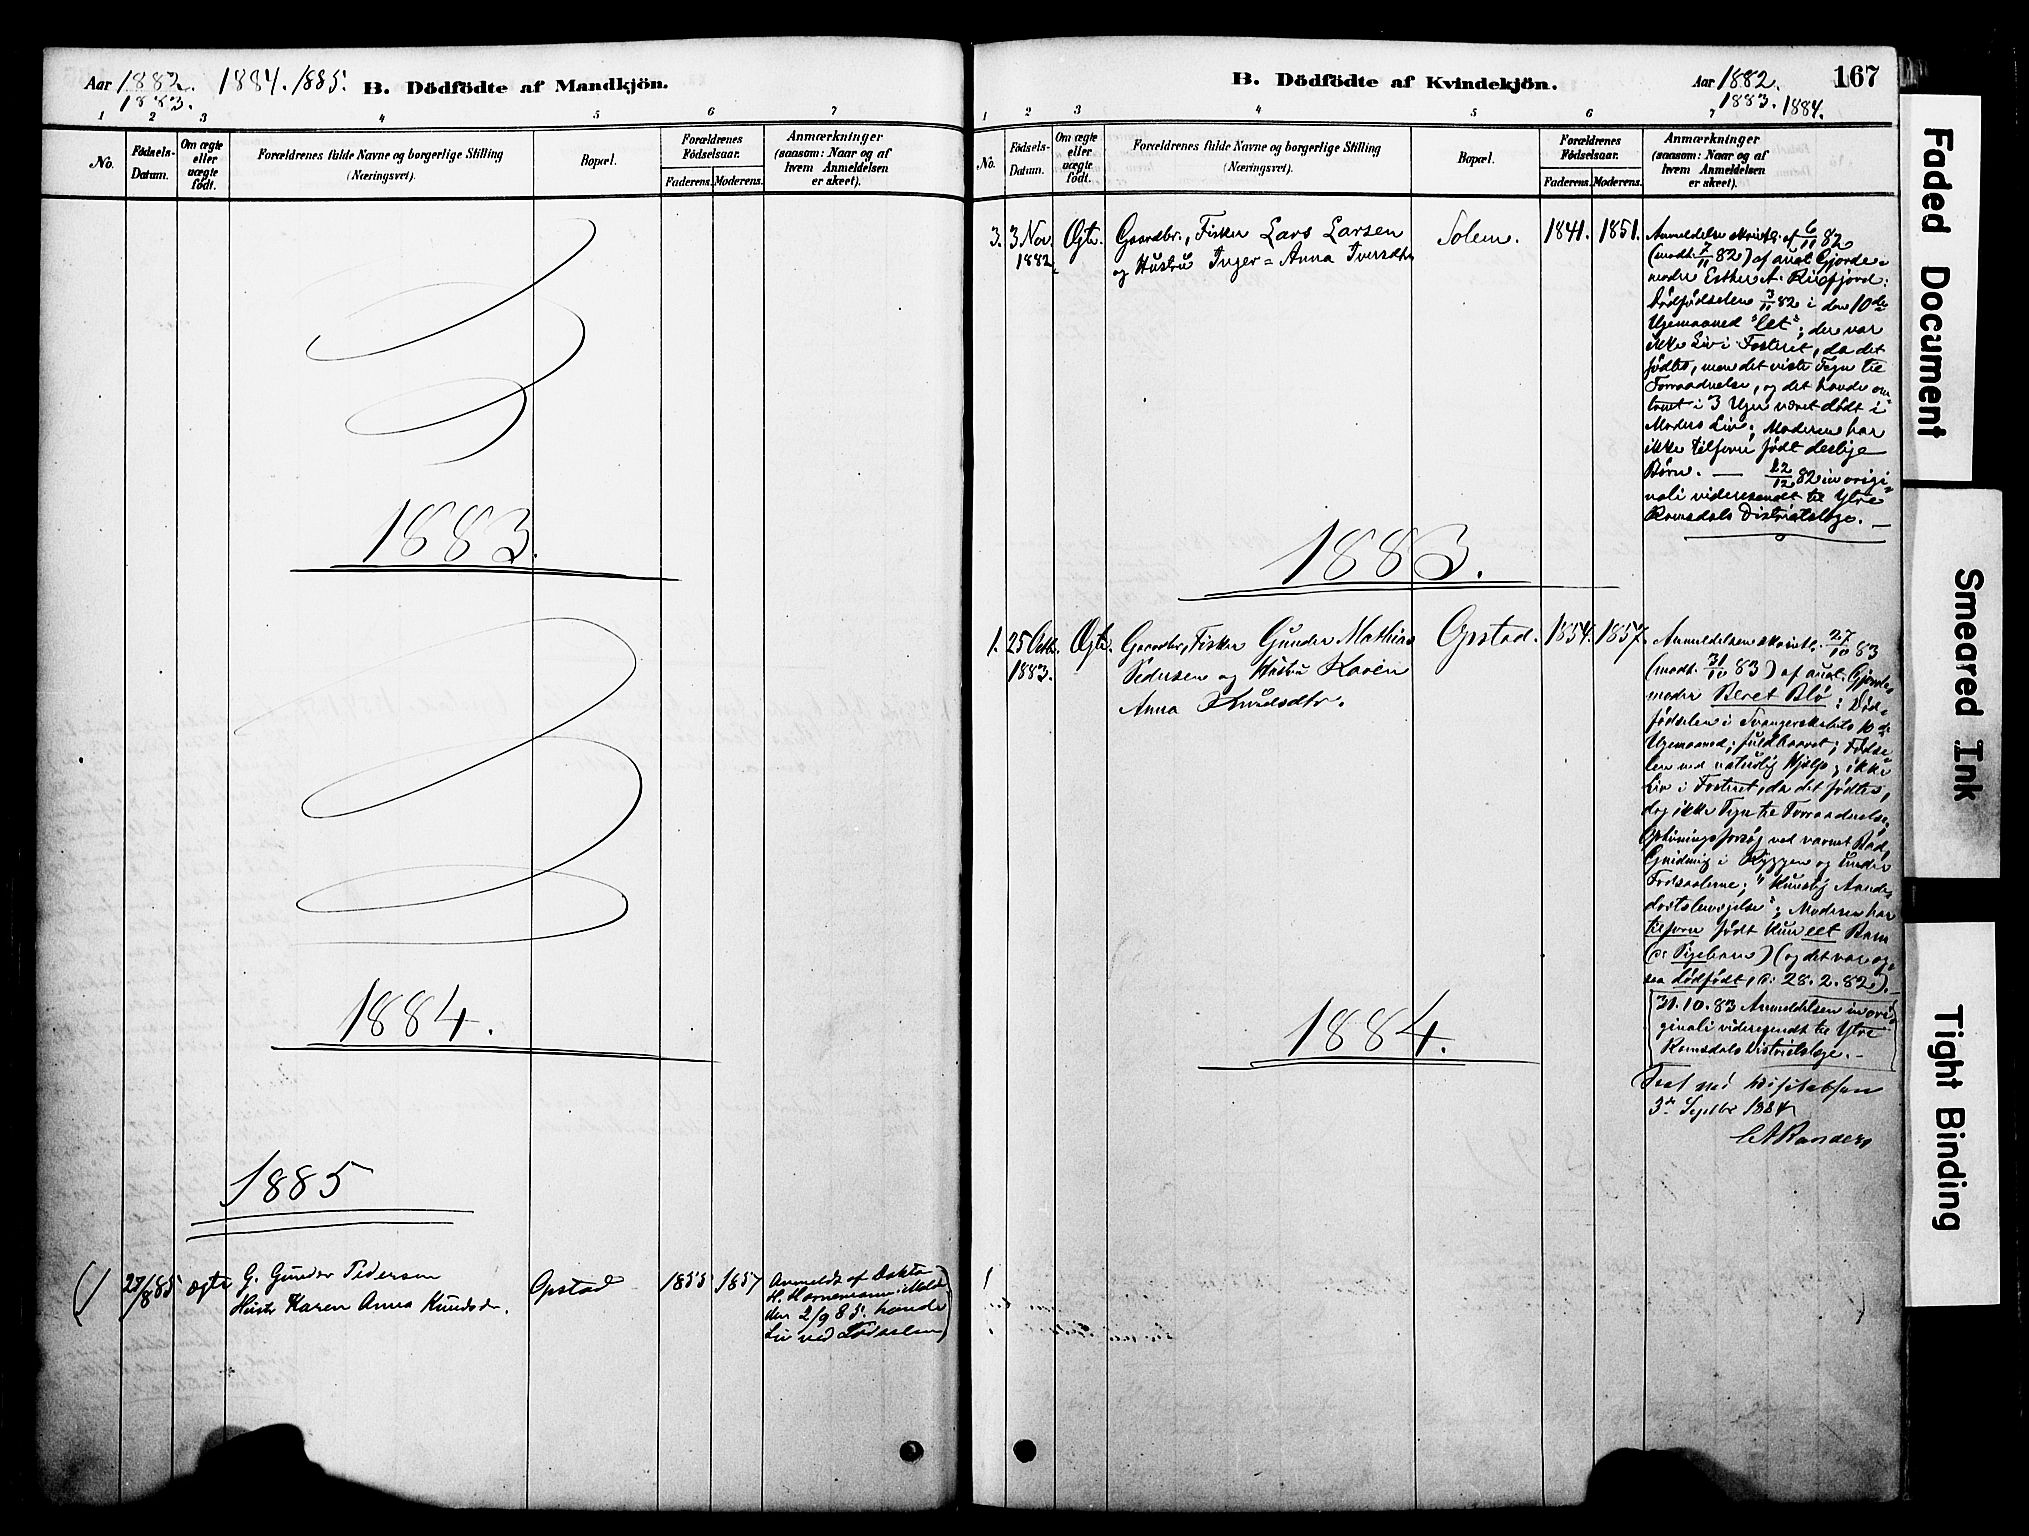 Aar 1882. 1884. 1885.
1883.
B. Dödfödte af Mandkjön.
1 2 3 4 5 6 7
No.
Födsels-
Datum.
Om ægte
eller
uægte
födt.
Forældrenes fulde Navne og borgerlige Stilling
(Næringsvei).
Bopæl.
Forældrenes
Födselsaar.
Faderens. Moderens.
Anmærkninger
(saasom: Naar og af
hvem Anmeldelsen
er skeet).
1883.
1884.
1885
1 27/8 85 ægte G. Gunder Pedersen Opstad 1855 1857 Anmeldt af Doktor
Hustr Karen Anna Knudsdr. H. Hornemann i Molde
den 2/9 85. havde
Liv ved Födselen
B. Dödfödte af Kvindekjön.
Aar 1882. 167
1883. 1884.
1 2 3 4 5 6 7
No.
Födsels-
Datum.
Om ægte
eller
uægte
födt.
Forældrenes fulde Navne og borgerlige Stilling
(Næringsvei).
Bopæl.
Forældrenes
Födselsaar.
Faderens. Moderens.
Anmærkninger
(saasom: Naar og af
hvem Anmeldelsen
er skeet).
3. 3 Nov. 1882 Ægte. Gaardbr., Fisker Lars Larsen Solem. 1841. 1851.
og Hustru Inger=Anna Iversdtr
Anmeldelse skriftl. af 6/11 82
(modt. 7/11 82) af anst. Gjorde=
moder Esther A. Riisfjord:
Dødfødselen 3/11 82 i den 10de
Ugemaaned "let"; der var
ikke Liv i Fosteret, da det
fødtes, men det viste Tegn til
Forraadnelse, og det havde om=
trent i 3 Uger været dødt i
Moders Liv; Moderen har
ikke tilforn født deslige
Børn. — 22/12 82 in origi=
nali videresendt til Ytre
Romsdals Distriktslæge. —
1883.
1. 25 Octb. 1883. Ægte. Gaardbr., Fisker Gunder Mathias Opstad. 1854. 1857.
Pedersen og Hustru Karen
Anna Knudsdtr.
Anmeldelsen skriftl. 27/10 83
(modt. 31/10 83) af anst. Gjorde=
moder Beret Blø: Død=
fødselen i Svangerskabets 10de
Ugemaaned; fuldbaaret; Fødse=
len ved naturlig Hjælp; ikke
Liv i Fosteret, da det fødtes,
dog ikke Tegn til Forraadnelse.
Oplivningsforsøg ved varmt Bad,
Gnidning i Ryggen og under
Fodsaalerne; "Kunstig Aande=
drætsbevægelse"; Moderen har
tilforn født kun eet Barn
(o: Pigebarn) (og det var og=
saa dødfødt, o: 28. 2. 82).
31. 10. 83 Anmeldelsen in ori=
ginali videresendt til Ytre
Romsdals Distriktslæge. —
1884.
Seet ved Visitatsen
3de Septbr 1884
Randers
Faded Document
Smeared Ink
Tight Binding